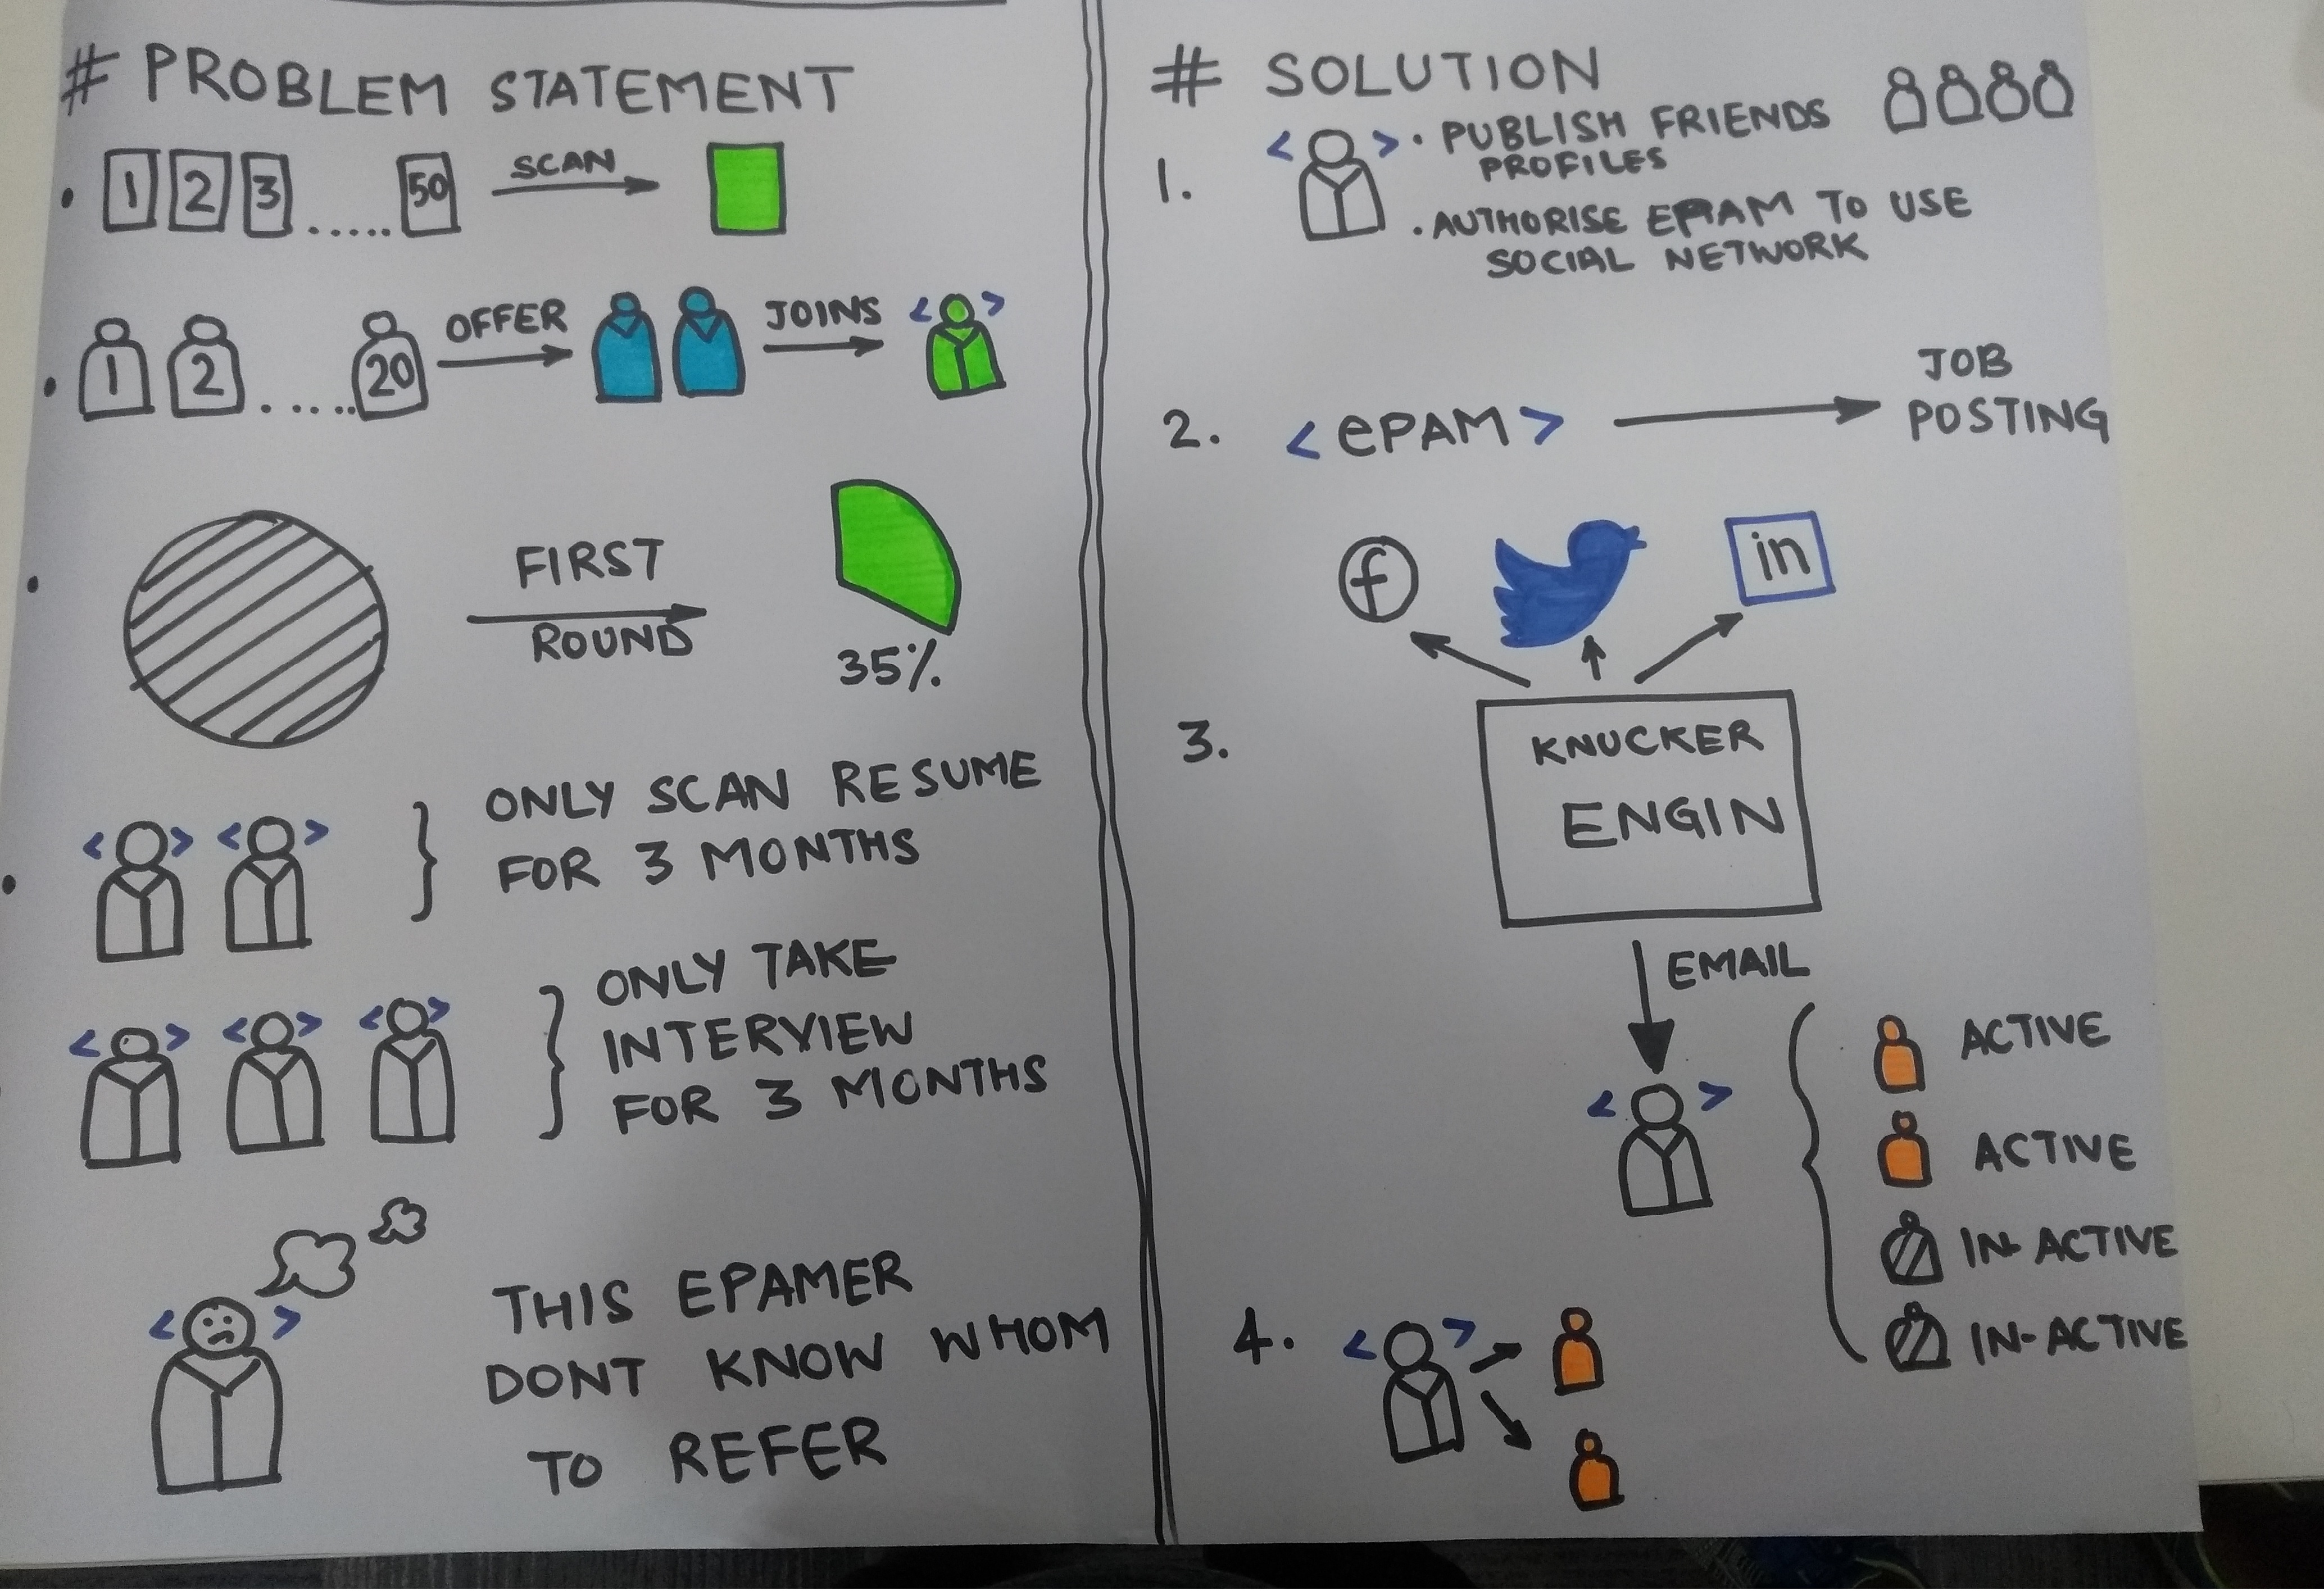 # PROBLEM STATEMENT
• 1 2 3 ..... 50 SCAN
• 1 2 ..... 20 OFFER JOINS < >
• FIRST
ROUND
35%
• < > < > } ONLY SCAN RESUME
FOR 3 MONTHS
< > < > < > } ONLY TAKE
INTERVIEW
FOR 3 MONTHS
< > THIS EPAMER
DONT KNOW WHOM
TO REFER
# SOLUTION
1. < > • PUBLISH FRIENDS
PROFILES
• AUTHORISE EPAM TO USE
SOCIAL NETWORK
2. <ePAM> JOB
POSTING
f in
3. KNUCKER
ENGIN
EMAIL
< > { ACTIVE
ACTIVE
IN-ACTIVE
IN-ACTIVE
4. < >